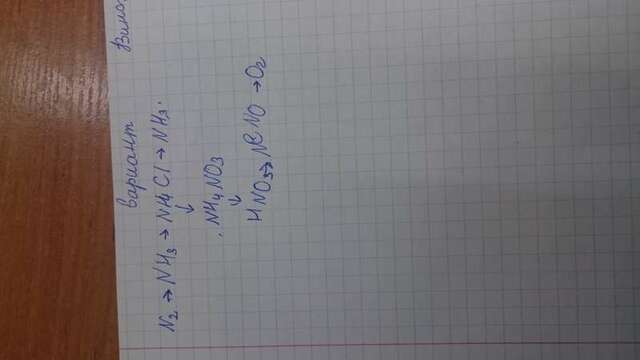 вариант
N₂ → NH₃ → NH₄Cl → NH₃.
↓
NH₄NO₃
↓
HNO₃ → → O₂